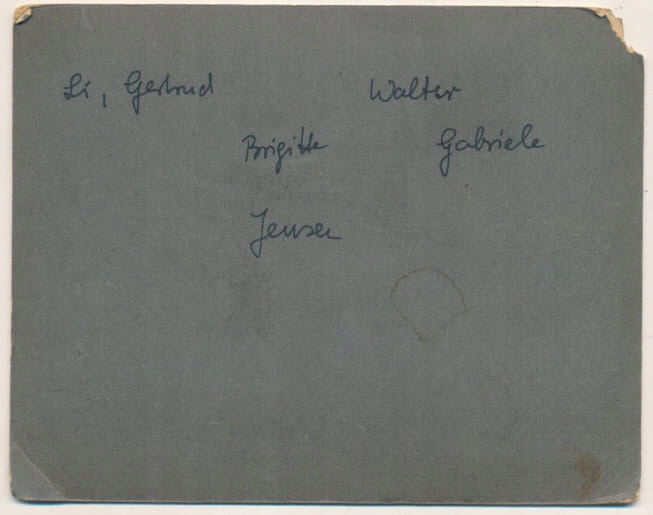 Li, Gertrud Walter
Brigitte Gabriele
Jensen